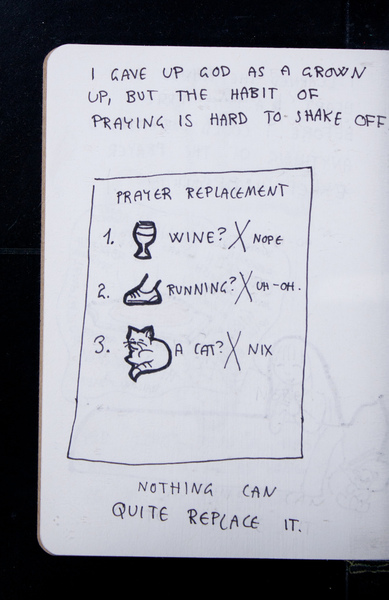 I GAVE UP GOD AS A GROWN
UP, BUT THE HABIT OF
PRAYING IS HARD TO SHAKE OFF
PRAYER REPLACEMENT
1. WINE? X NOPE
2. RUNNING? X UH-OH.
3. A CAT? X NIX
NOTHING CAN
QUITE REPLACE IT.